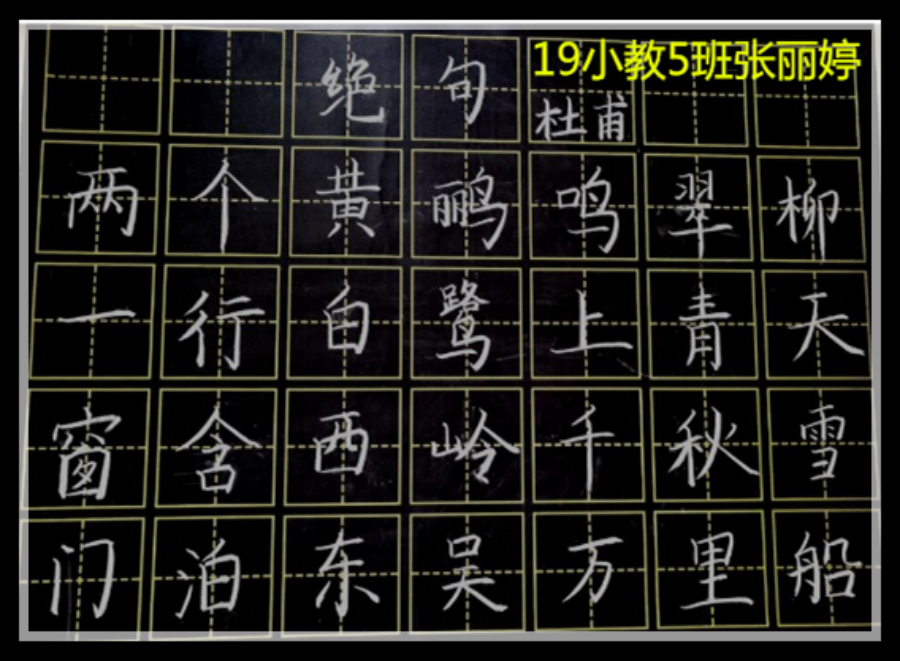 19小教5班张丽婷
绝句
杜甫
两个黄鹂鸣翠柳
一行白鹭上青天
窗含西岭千秋雪
门泊东吴万里船